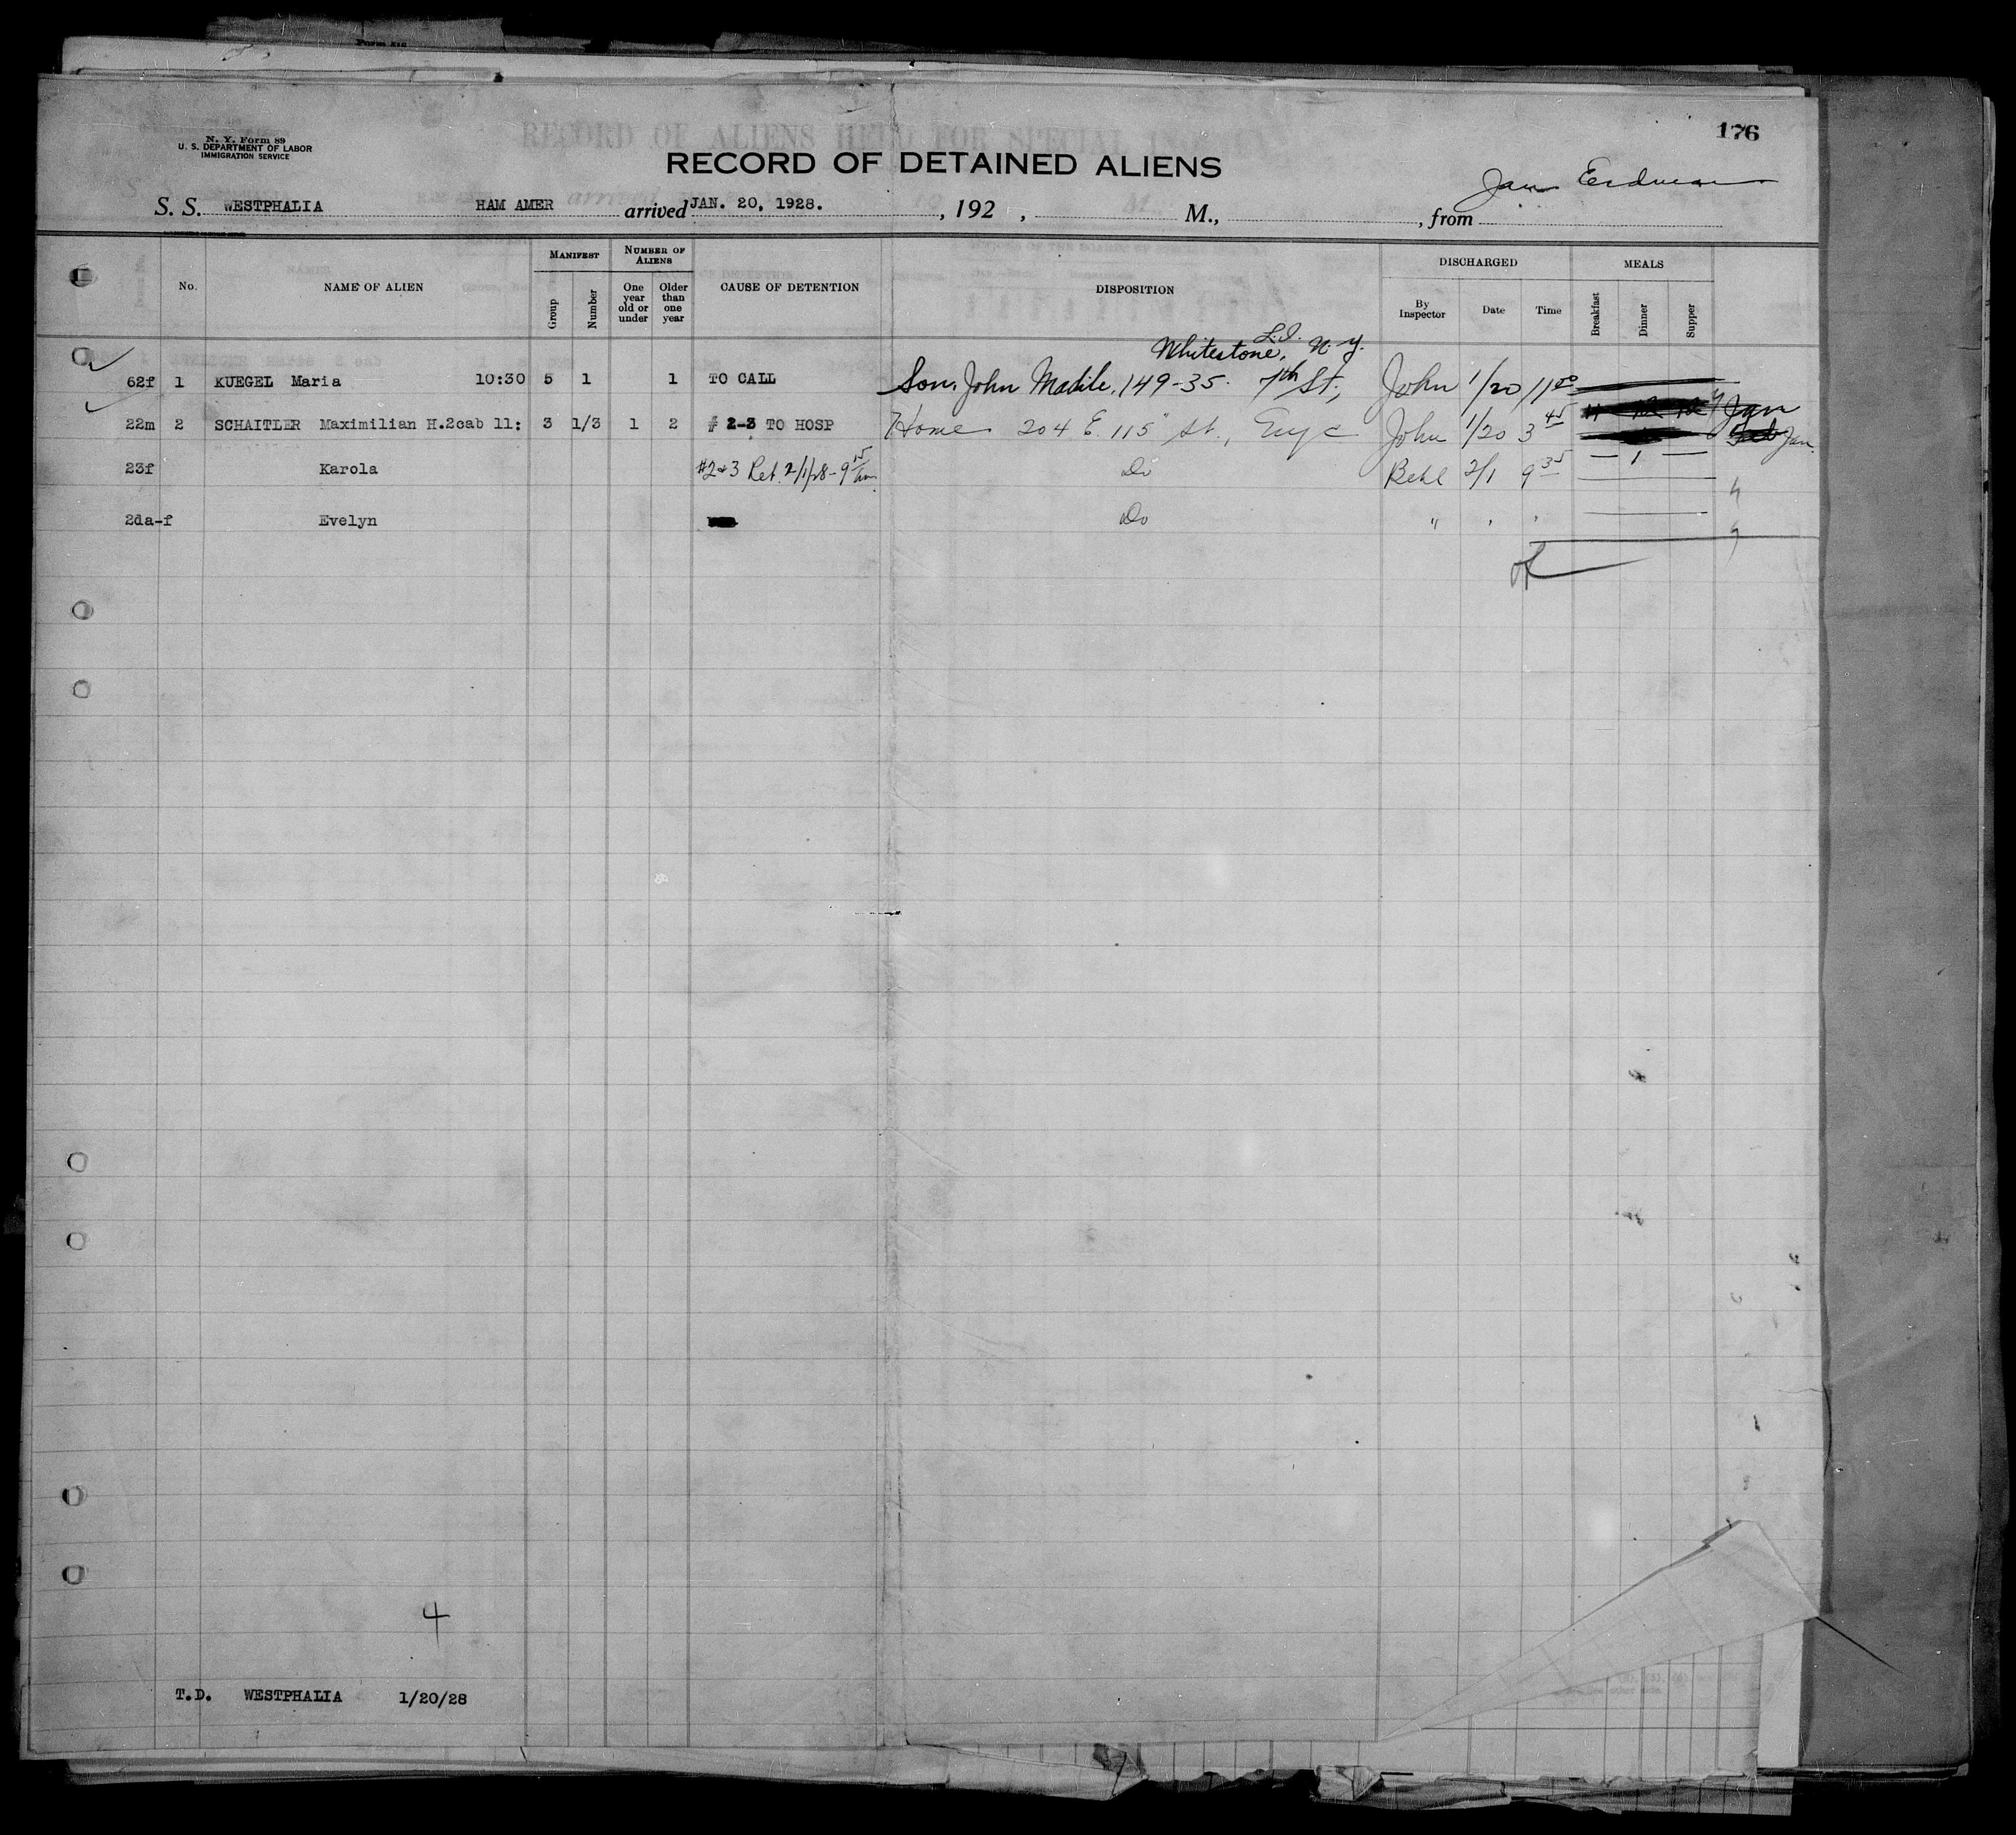 176
N. Y. Form 89
U. S. DEPARTMENT OF LABOR
IMMIGRATION SERVICE
RECORD OF DETAINED ALIENS
S. S. WESTPHALIA HAM AMER arrived JAN. 20, 1928. , 192 , M., , from
No. NAME OF ALIEN MANIFEST Group Number NUMBER OF ALIENS One year old or under Older than one year CAUSE OF DETENTION DISPOSITION DISCHARGED By Inspector Date Time MEALS Breakfast Dinner Supper
Whitestone, L.I. N.Y.
62f 1 KUEGEL Maria 10:30 5 1 1 TO CALL Son, John 149-35. 7th St, John 1/20
22m 2 SCHAITLER Maximilian H.2cab 11: 3 1/3 1 2 # 2-3 TO HOSP Home 204 E. 115 St., John 1/20 3 45 Jan
23f Karola #2+3 Ret. 2/1/28 - 9 15 Do 2/1 9 35 1
2da-f Evelyn Do " " "
4
T.D. WESTPHALIA 1/20/28